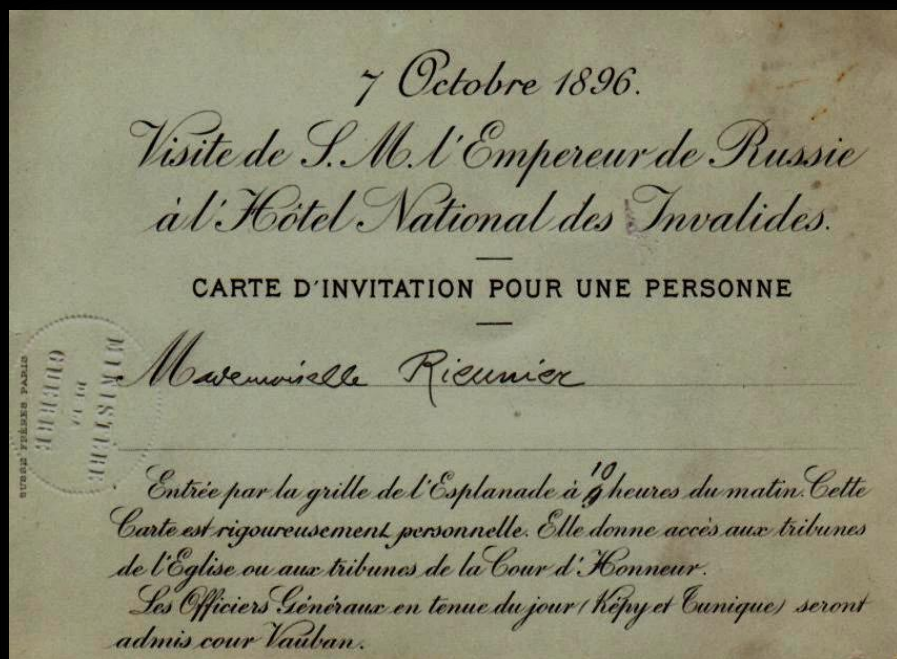 7 Octobre 1896.
Visite de S. M. l'Empereur de Russie
à l'Hôtel National des Invalides.
CARTE D'INVITATION POUR UNE PERSONNE
Mademoiselle Rieunier
MINISTÈRE
DE LA
GUERRE
SUSSE FRÈRES PARIS
Entrée par la grille de l'Esplanade à 10 heures du matin. Cette
Carte est rigoureusement personnelle. Elle donne accès aux tribunes
de l'Eglise ou aux tribunes de la Cour d'Honneur.
Les Officiers Généraux en tenue du jour (Képy et Tunique) seront
admis cour Vauban.